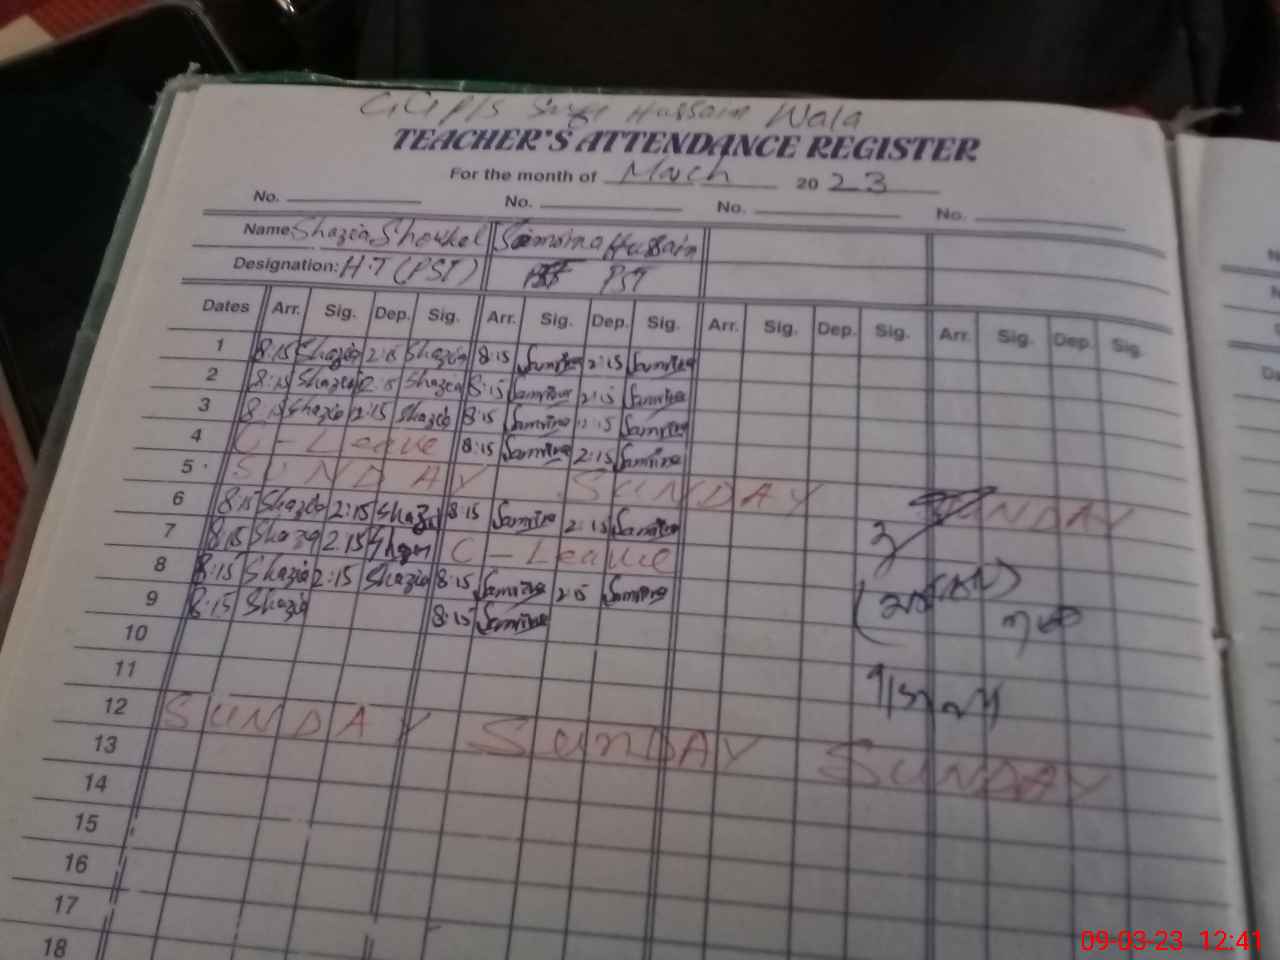 GGP/S Hussain Wala
TEACHER'S ATTENDANCE REGISTER
For the month of March 2023
No. No. No. No.
Name Shazia Shoukat Samrina Hussain
Designation: H.T (PST) PST
Dates Arr. Sig. Dep. Sig. Arr. Sig. Dep. Sig. Arr. Sig. Dep. Sig. Arr. Sig. Dep. Sig.
1 8:15 Shazia 2:15 Shazia 8:15 Samrina 2:15 Samrina
2 8:15 Shazia 2:15 Shazia 8:15 Samrina 2:15 Samrina
3 8:15 Shazia 2:15 Shazia 8:15 Samrina 2:15 Samrina
4 C - Leave 8:15 Samrina 2:15 Samrina
5 SUNDAY SUNDAY SUNDAY
6 8:15 Shazia 2:15 Shazia 8:15 Samrina 2:15 Samrina
7 8:15 Shazia 2:15 Shazia C - Leave
8 8:15 Shazia 2:15 Shazia 8:15 Samrina 2:15 Samrina
9 8:15 Shazia 8:15 Samrina
10
11
12 SUNDAY SUNDAY SUNDAY
13
14
15
16
17
18
09-03-23 12:41